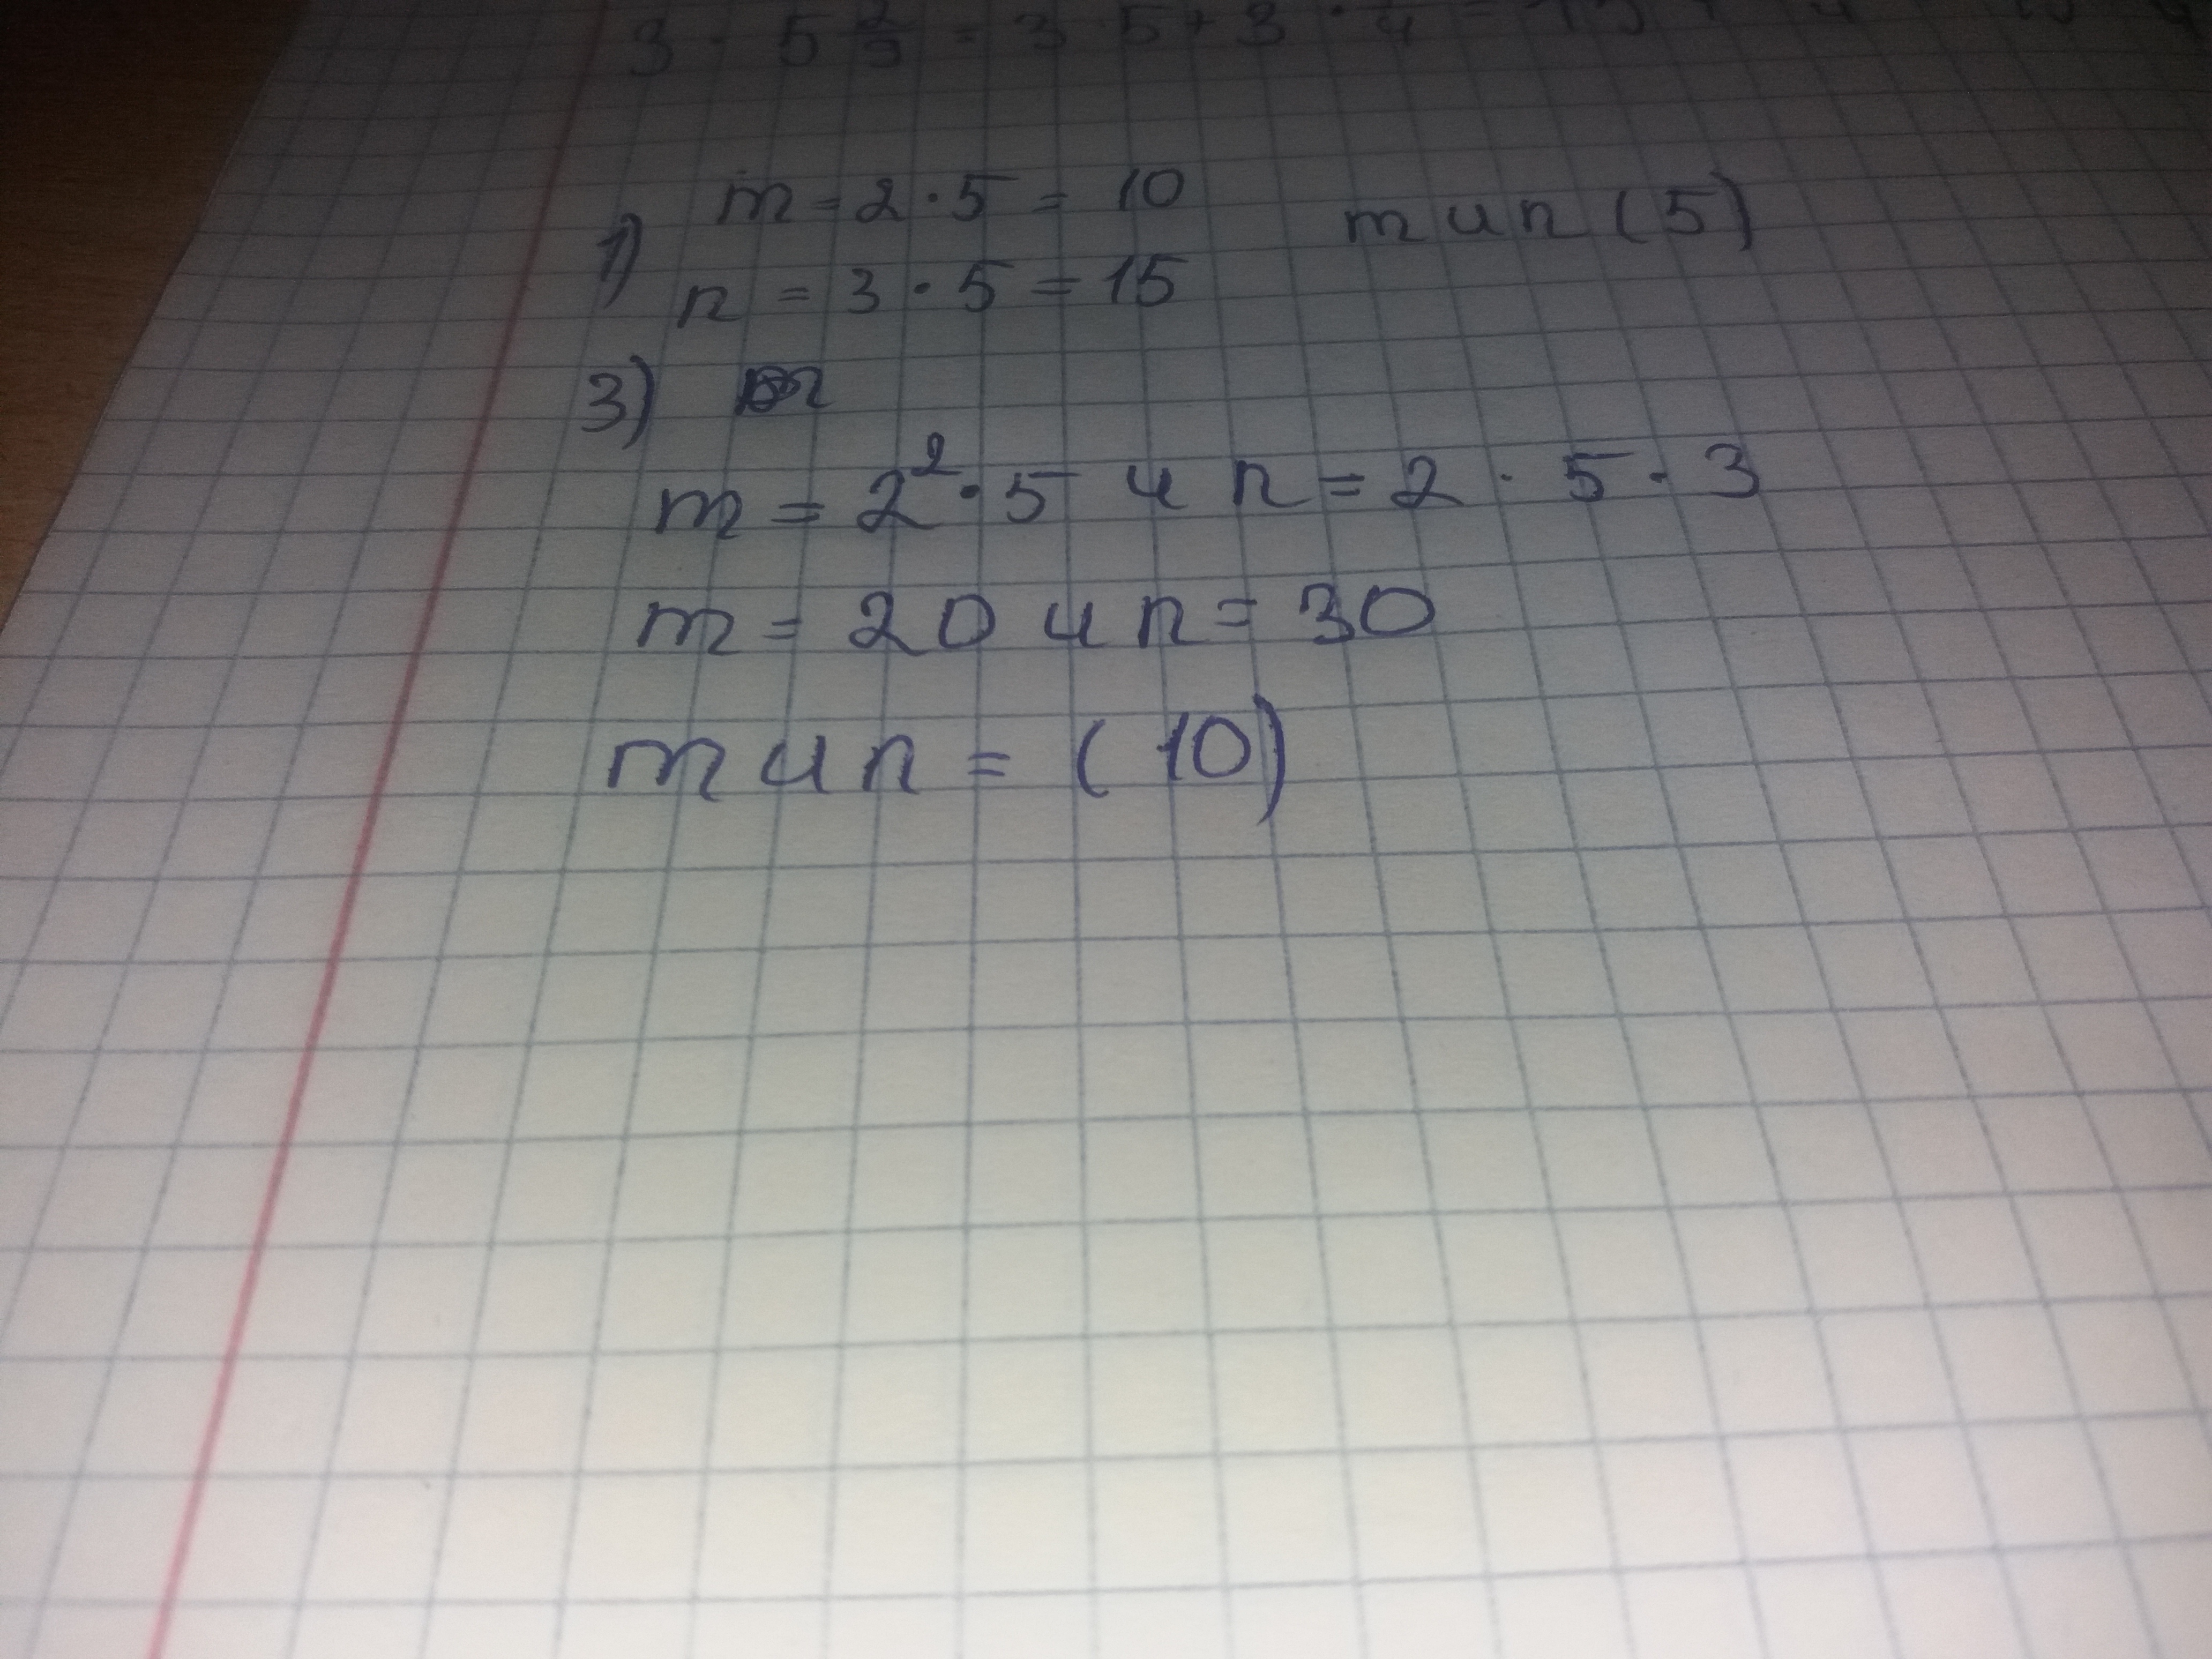 3 · 5 2/3 = 3 · 5 + 3 ·
1) m = 2 · 5 = 10 m и n (5)
n = 3 · 5 = 15
3)
m = 2² · 5 и n = 2 · 5 · 3
m = 20 и n = 30
m и n = (10)